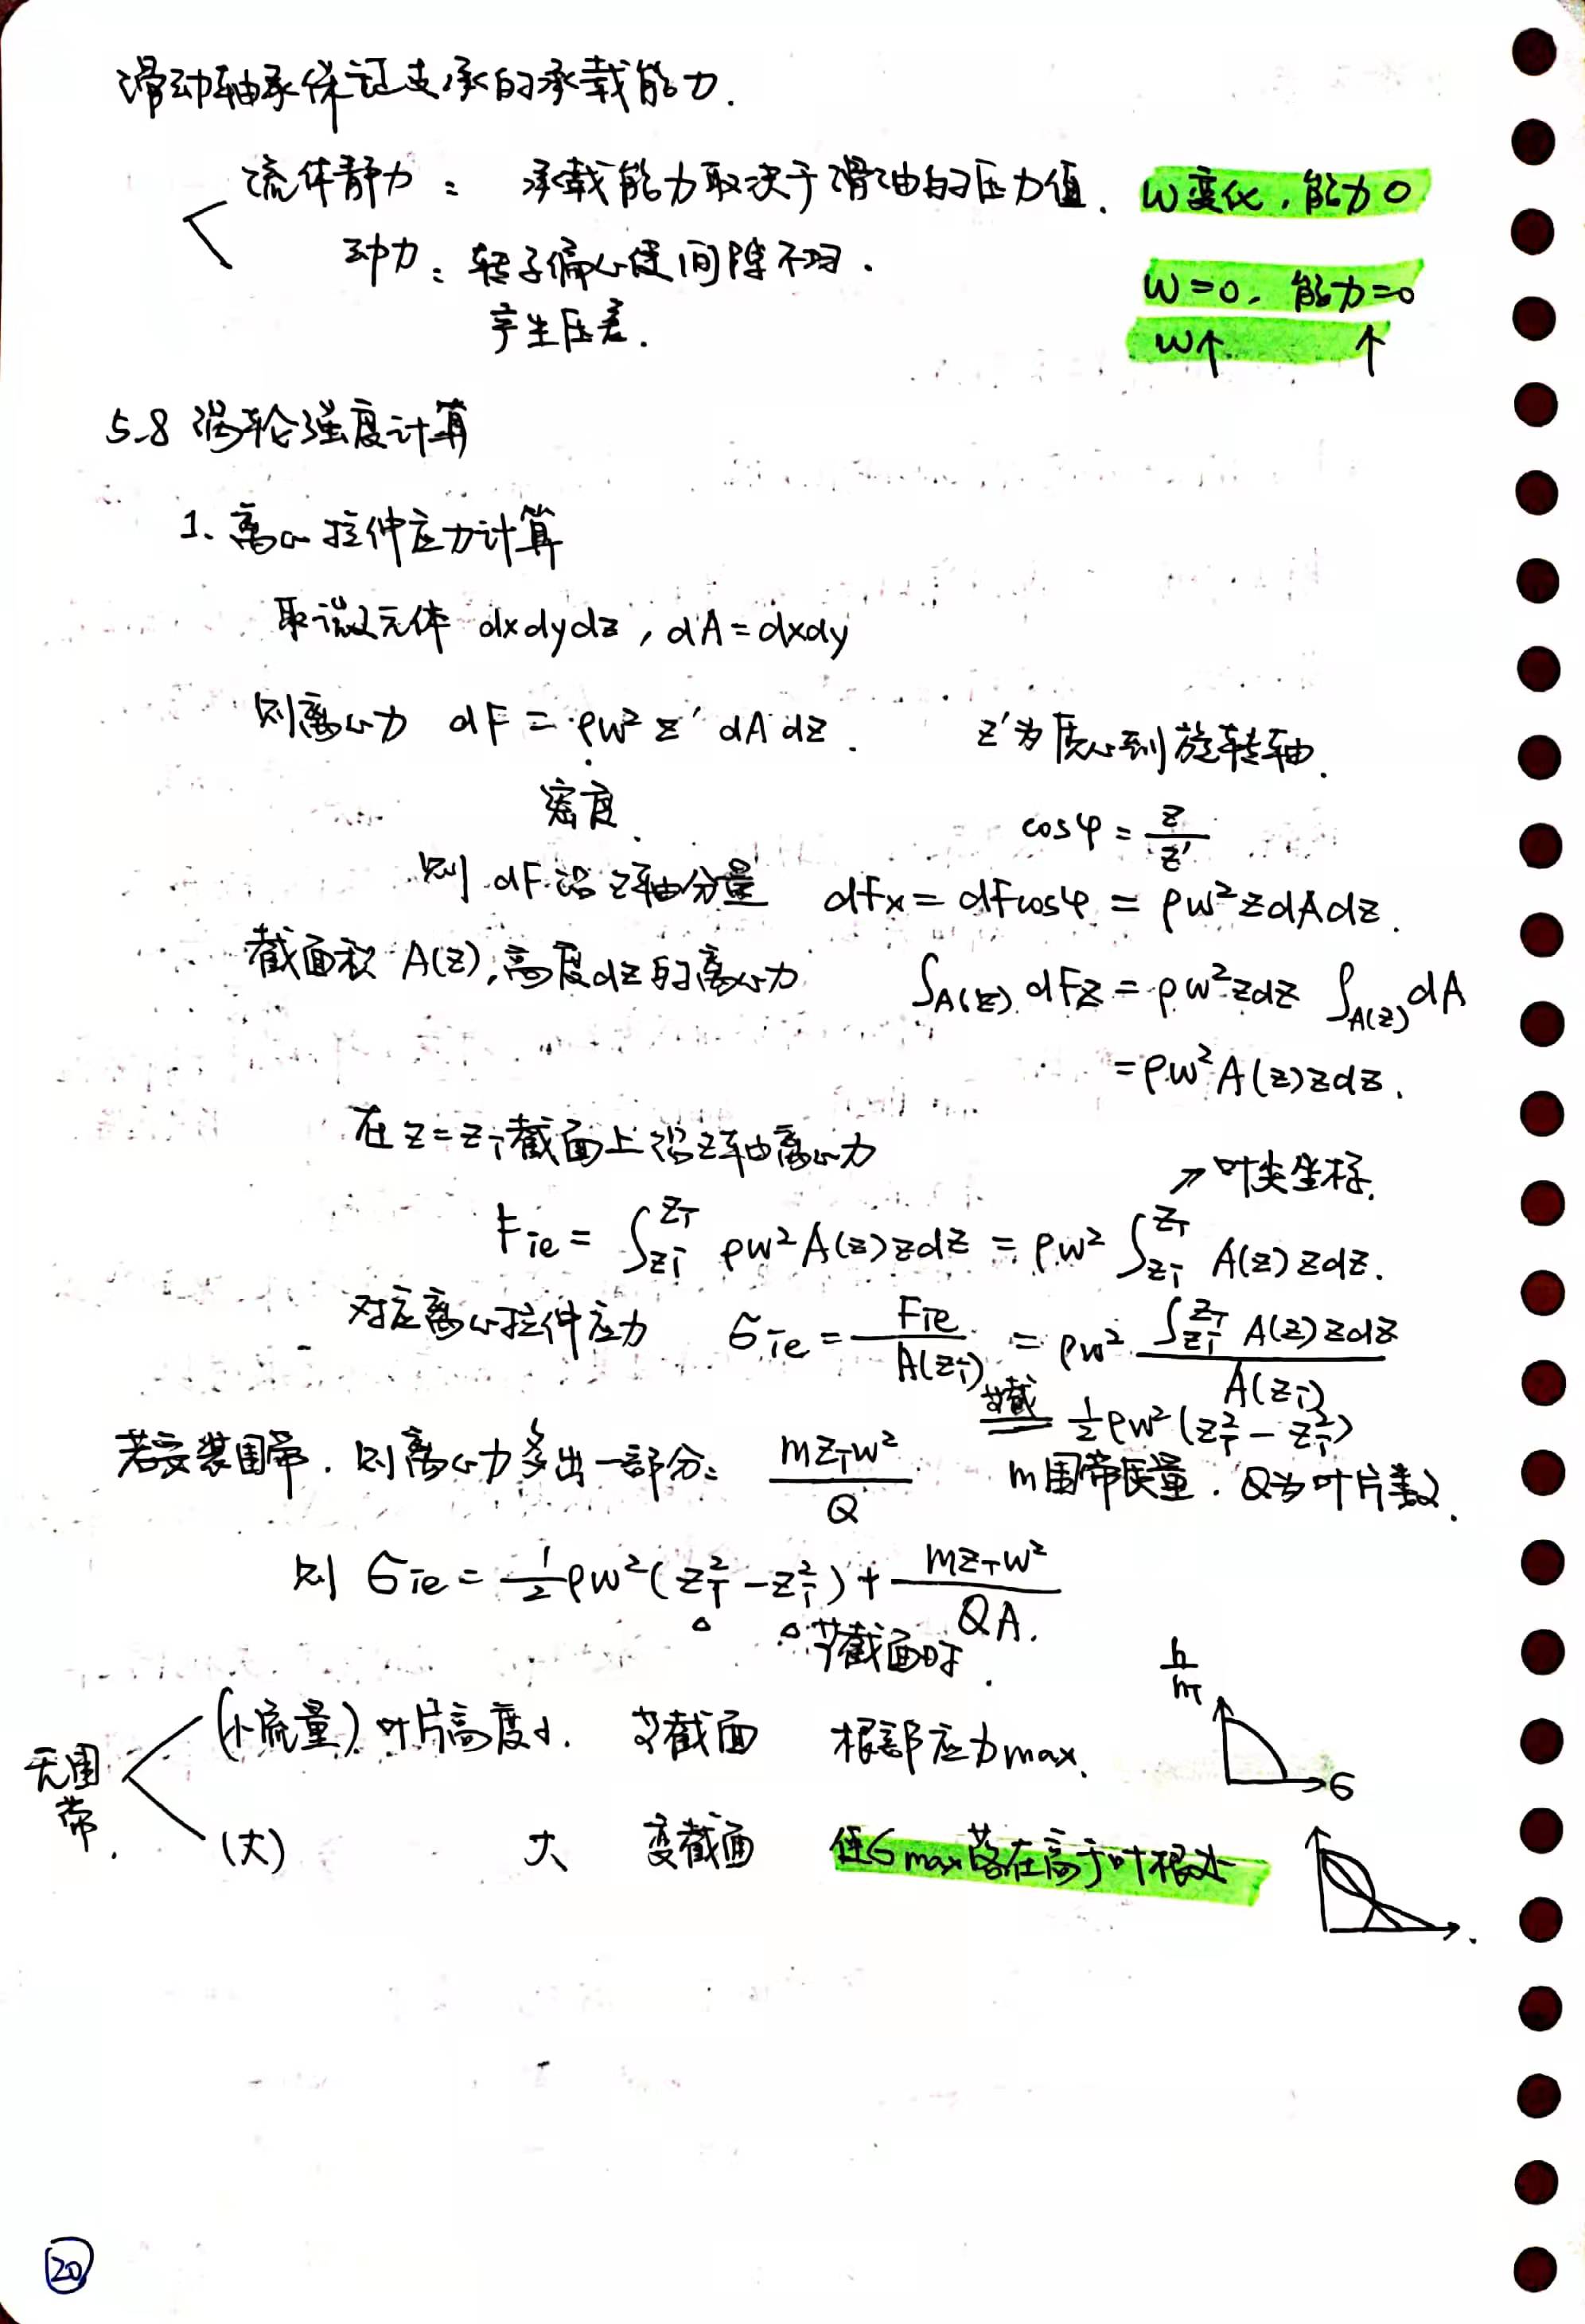 滑动轴承保证支承的承载能力.
流体静力： 承载能力取决于滑油的压力值. ω变化，能力0
动力：转子偏心使间隙不均.
ω=0. 能力=0
产生压差. ω↑ ↑
5.8 涡轮强度计算
1. 离心拉伸应力计算
取微元体 dxdydz，dA=dxdy
则离心力 dF = ρω² z′ dA dz. z′为质心到旋转轴.
密度.
cosφ = z/z′
则 dF 沿z轴分量 dFx = dFcosφ = ρω²zdAdz.
截面积 A(z), 高度dz的离心力 ∫A(z) dFz = ρω²zdz ∫A(z) dA
=ρω²A(z)zdz.
在z=zi截面上沿z轴离心力
↗叶尖坐标.
Fie = ∫zi^zT ρω²A(z)zdz = ρω² ∫zi^zT A(z)zdz.
对应离心拉伸应力 σie = Fie/A(zi) = ρω² ∫zi^zT A(z)zdz / A(zi)
等截 = ½ρω²(zT² − zi²)
若安装围带. 则离心力多出一部分： mzTω²/Q m围带质量. Q为叶片数.
则 σie = ½ρω²(zT² − zi²) + mzTω²/QA.
等截面时.
h/hT
无围带. (小流量) 叶片高度小. 等截面 根部应力max. σ
(大) 大 变截面 使σmax落在高于叶根处
20